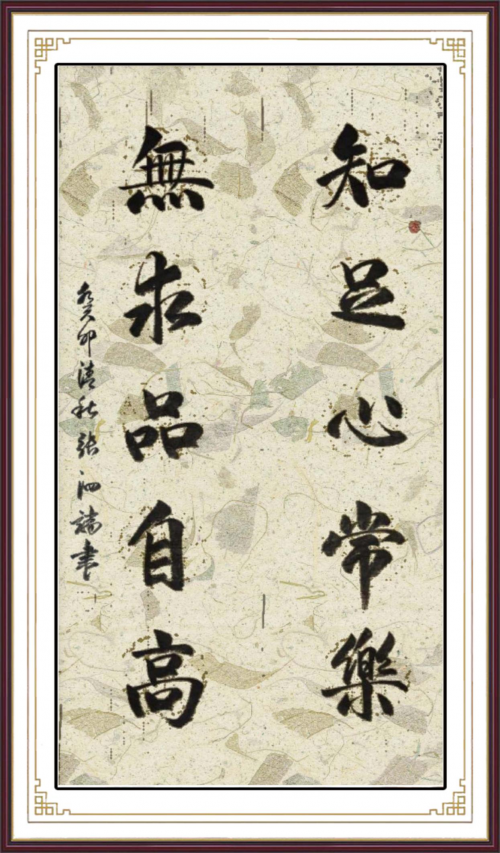 知足心常樂
無求品自高
癸卯清秋張泗瑞書